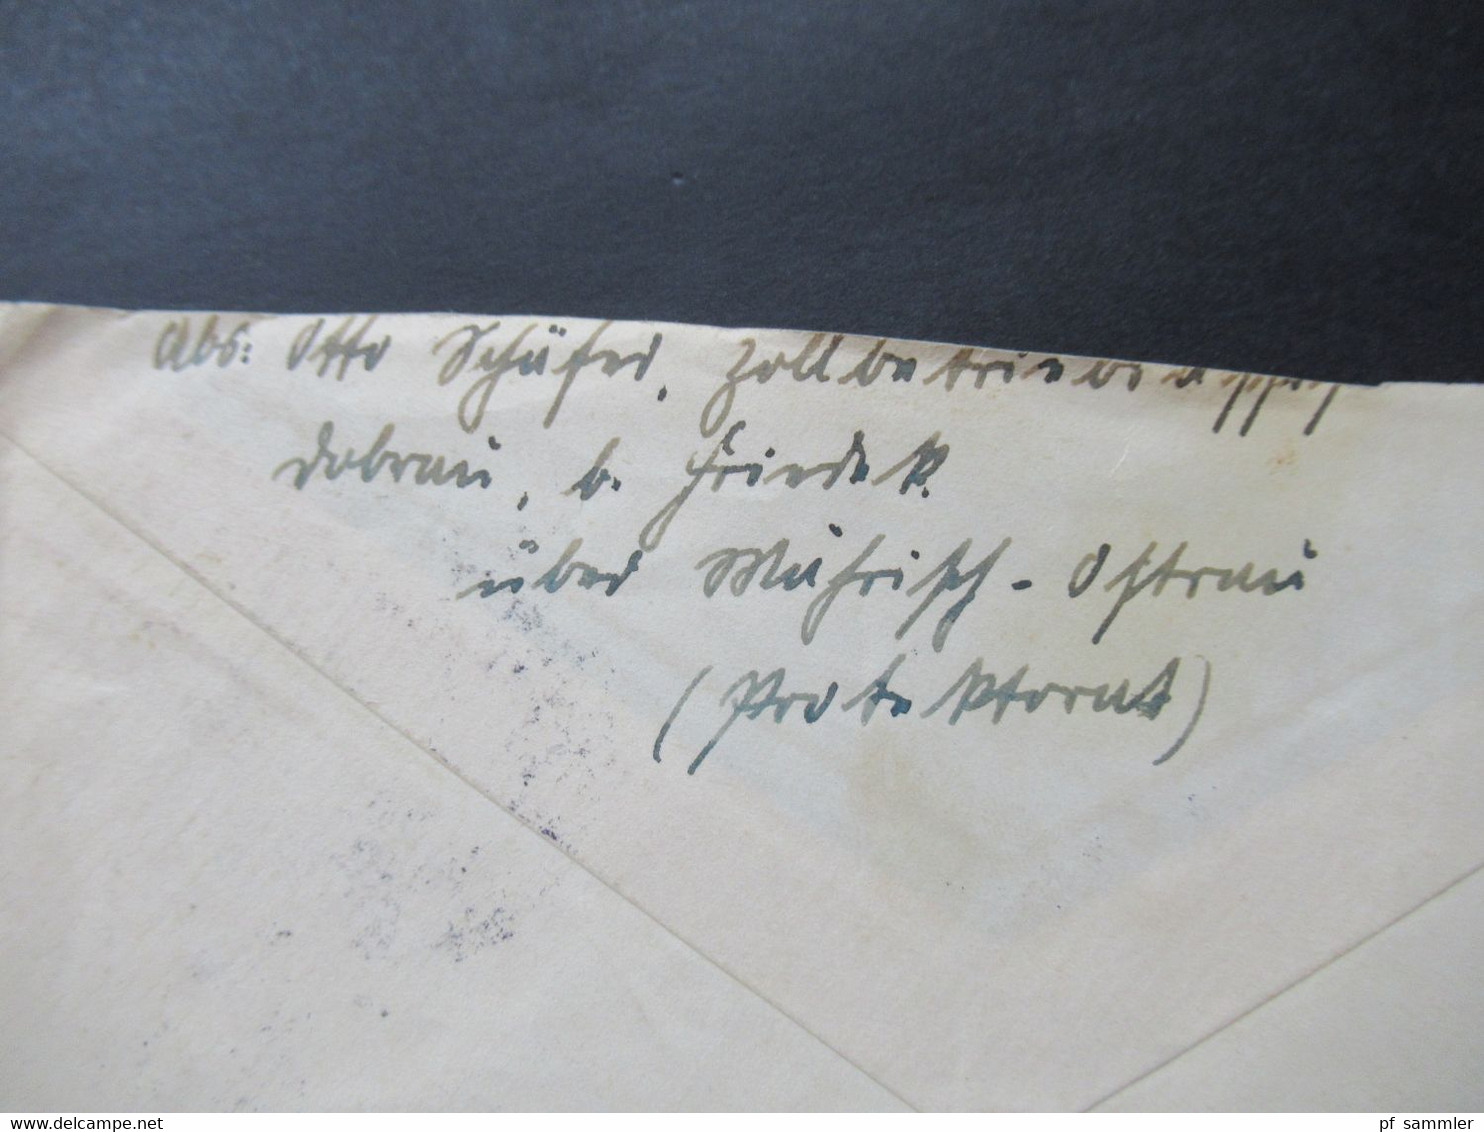 Abs: Otto Schäfer, Zollbetriebsassist
Dobrau, b. Friedek.
über Mährisch-Ostrau
(Protektorat)
www.delcampe.net
pf_sammler